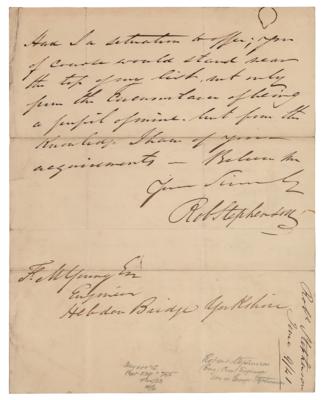 Had I a situation to offer, you
of course would stand near
the top of my list, not only
from the Circumstance of being
a pupil of mine, but from the
knowledge I have of your
acquirements — Believe me
Yours Sincerely
Rob Stephenson
Young
Engineer
Hebden Bridge Yorkshire
Robt Stephenson
June
Robert Stephenson